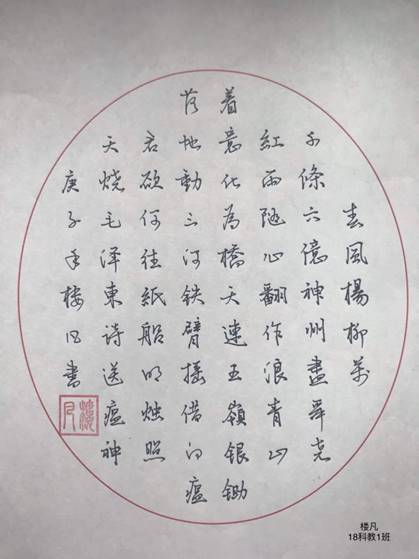 春風楊柳萬
千條六億神州盡舜尧
紅雨随心翻作浪青山
着意化為橋天連五嶺银锄
落地動三河铁臂摇借问瘟
君欲何往紙船明烛照
天烧毛泽東诗送瘟神
庚子年楼凡書
楼凡
18科教1班